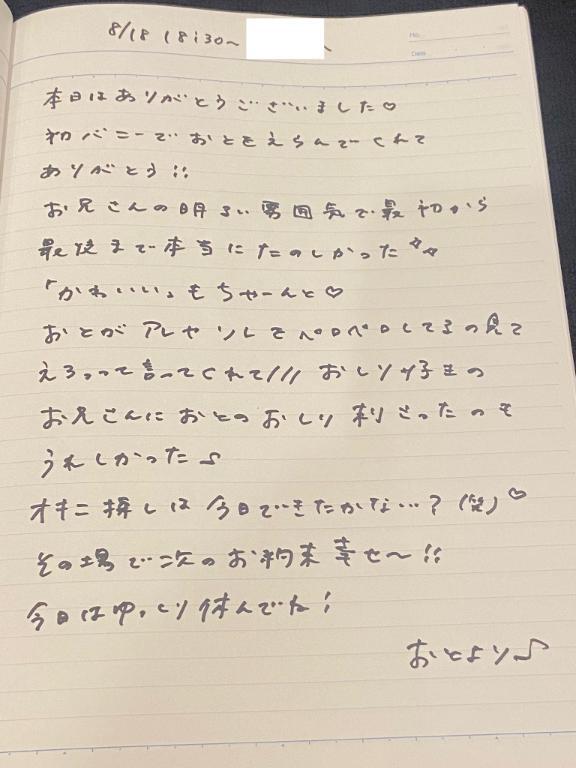 8/18 18:30〜
No.
Date
本日はありがとうございました♡
初バニーでおとをえらんでくれて
ありがとう!!
お兄さんの明るい雰囲気で最初から
最後まで本当にたのしかった✧✧
「かわいい」もちゃーんと♡
おとがアレやソレをペロペロしてるの見て
えろって言ってくれて/// おしりずきの
お兄さんにおとのおしり刺さったのも
うれしかった♪
オキニ探しは今日できたかな…?(笑)♡
その場で次のお約束幸せ〜!!
今日はゆっくり休んでね!
おとより♪